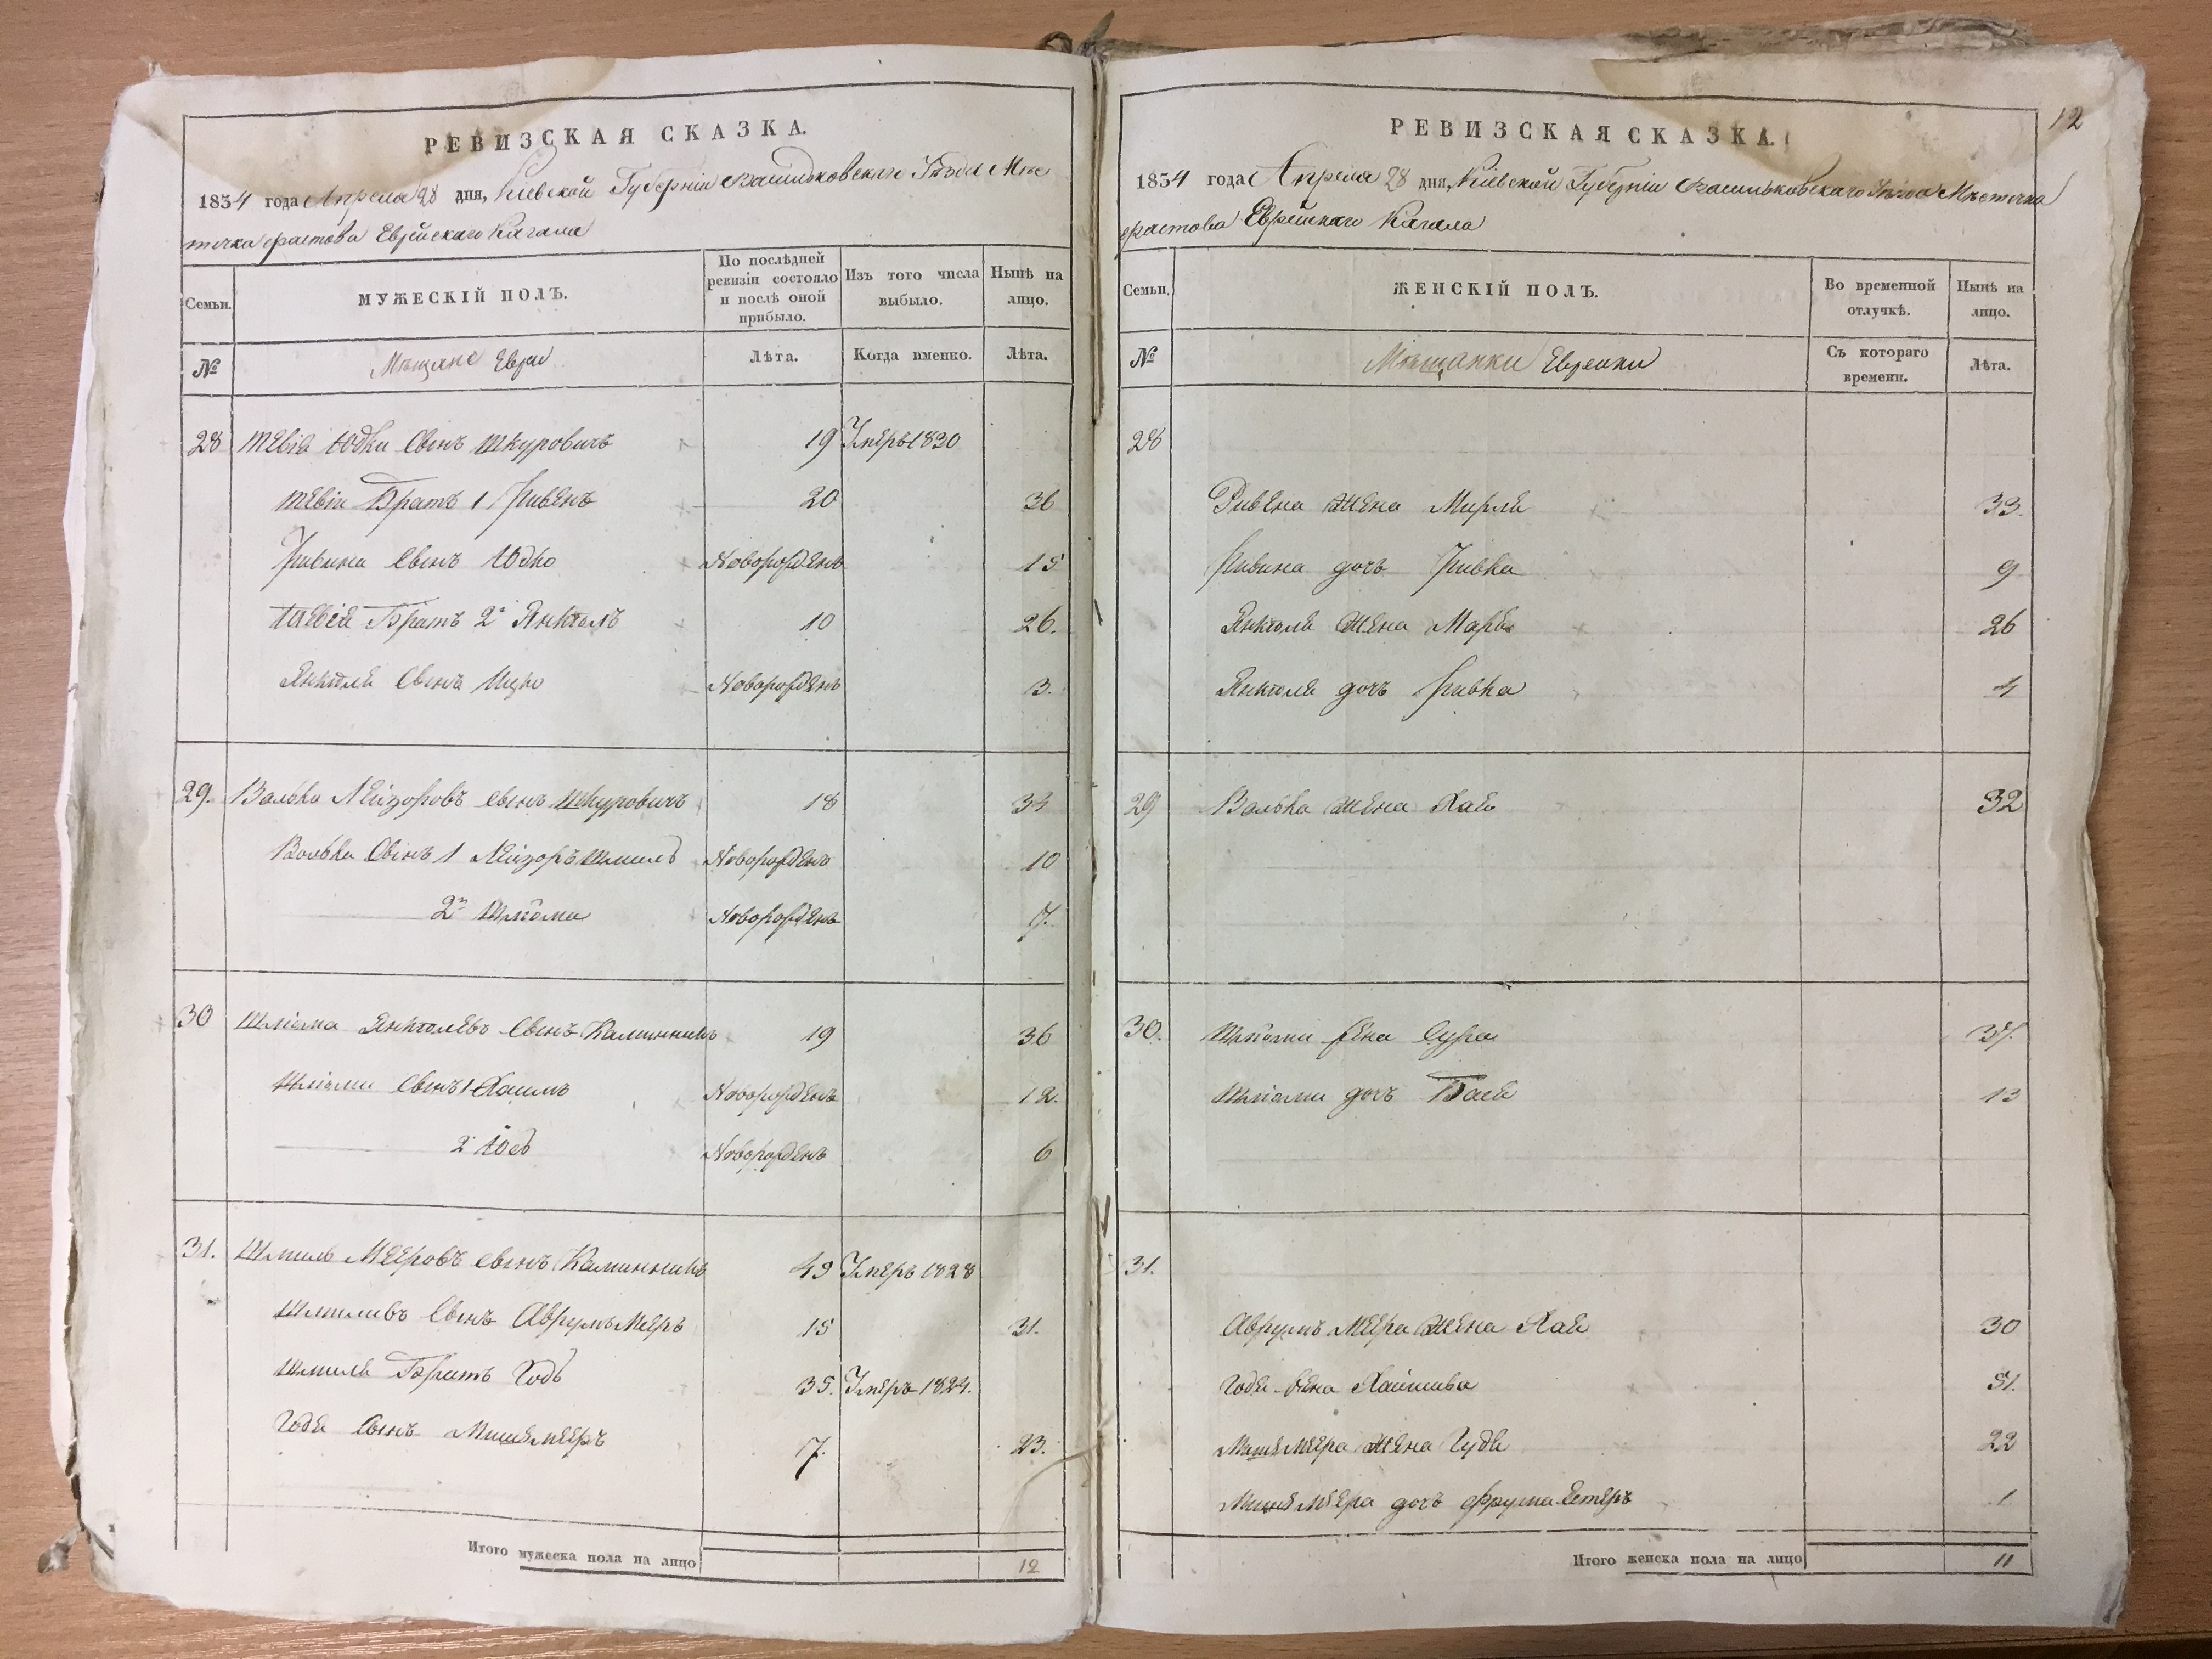 РЕВИЗСКАЯ СКАЗКА.
1834 года Апреля 28 дня, Кіевской Губерніи Васильковскаго Уѣзда Мѣс
течка Фастова Еврейскаго Кагала
Семьи.
МУЖЕСКІЙ ПОЛЪ.
По послѣдней ревизіи состояло и послѣ оной прибыло.
Изъ того числа выбыло.
Нынѣ на лицо.
№
Мѣщане Евреи
Лѣта.
Когда именно.
Лѣта.
28 Тевія Юдки Сынъ Шкуровичъ 19 Умеръ 1830
Тевіи Братъ 1 Ривенъ 20 36
Ривина Сынъ Юдко Новорожденъ 15
Тевіи Братъ 2й Янкель 10 26.
Янкеля Сынъ Ицко Новорожденъ 3.
29. Волько Лейзоровъ сынъ Шкуровичъ 18 34
Волька Сынъ 1 Лейзоръ Шмиль Новорожденъ 10
2й Шліома Новорожденъ 7.
30 Шліома Янкелевъ Сынъ Калинникъ 19 36
Шліоми Сынъ 1 Хаимъ Новорожденъ 12.
2й Юсь Новорожденъ 6
31. Шмиль Мееровъ сынъ Калинникъ 49 Умеръ 1828
Шмилевъ Сынъ Аврумъ Мееръ 15 31.
Шмиля Братъ Годь 35. Умеръ 1824.
Годя Сынъ Мишемееръ 7. 23.
Итого мужеска пола на лицо 12
12
РЕВИЗСКАЯ СКАЗКА.
1834 года Апреля 28 дня, Кіевской Губерніи Васильковскаго Уѣзда Мѣстечка
Фастова Еврейскаго Кагала
Семьи.
ЖЕНСКІЙ ПОЛЪ.
Во временной отлучкѣ.
Нынѣ на лицо.
№
Мѣщанки Еврейки
Съ котораго времени.
Лѣта.
28
Ривена Жена Мирля 33.
Ривина дочь Ривка 9
Янкеля Жена Марья 26
Янкеля дочь Ривка 4
29 Волька Жена Хая 32
30. Шліоми жена Сура 37.
Шліоми дочь Бася 13
31.
Аврумъ Меера Жена Хая 30
Годя жена 51.
Мишемеера Жена Гудя 22
Мишемеера дочь Фрума Естеръ 1
Итого женска пола на лицо 11